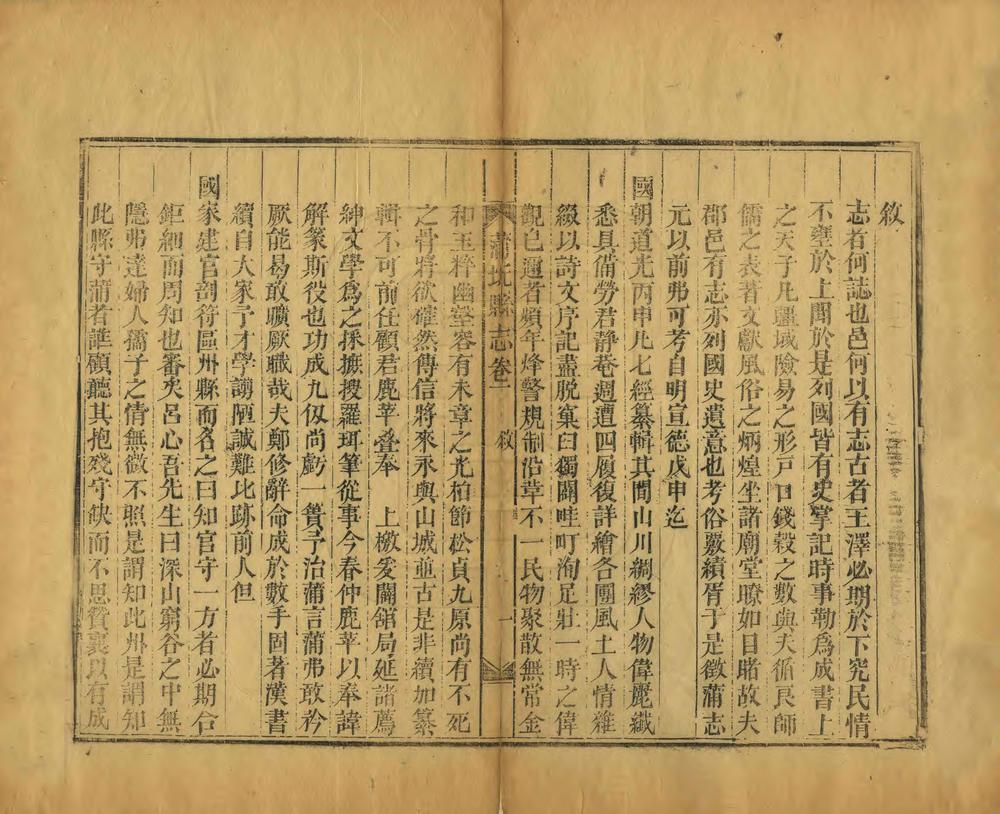 敘
志者何誌也邑何以有志古者王澤必期於下究民情
不壅於上聞於是列國皆有史掌記時事勒爲成書上
之天子凡疆域險易之形戸口錢穀之數與夫循良師
儒之表著文獻風俗之炳煌坐諸廟堂瞭如目睹故夫
郡邑有志亦列國史遺意也考俗覈績胥于是徵蒲志
元以前弗可考自明宣德戊申迄
國朝道光丙申凡七經纂輯其間山川綢繆人物偉麗纖
悉具備勞君靜菴週遭四履復詳繪各圖風土人情雜
綴以詩文序記盡脫窠臼獨闢畦町洵足壯一時之偉
觀已邇者頻年烽警規制沿革不一民物聚散無常金
蒲圻縣志 卷二 敘 一
和玉粹幽壑容有未章之光柏節松貞九原尚有不死
之骨將欲確然傳信將來永與山城亟古是非續加纂
輯不可前任顧君鹿苹壘奉 上檄爰闢舘局延諸薦
紳文學爲之採摭搜羅珥筆從事今春仲鹿苹以奉諱
解篆斯役也功成九仭尚虧一簣予治蒲言蒲弗敢矜
厥能曷敢曠厥職哉夫鄭修辭命成於數手固著漢書
續自大家予才學譾陋誠難比跡前人但
國家建官剖符區州縣而名之曰知官守一方者必期合
鉅細而周知也審矣呂心吾先生曰深山窮谷之中無
隱弗達婦人孺子之情無微不照是謂知此州是謂知
此縣守蒲者誰顧聽其抱殘守缺而不思贊襄以有成